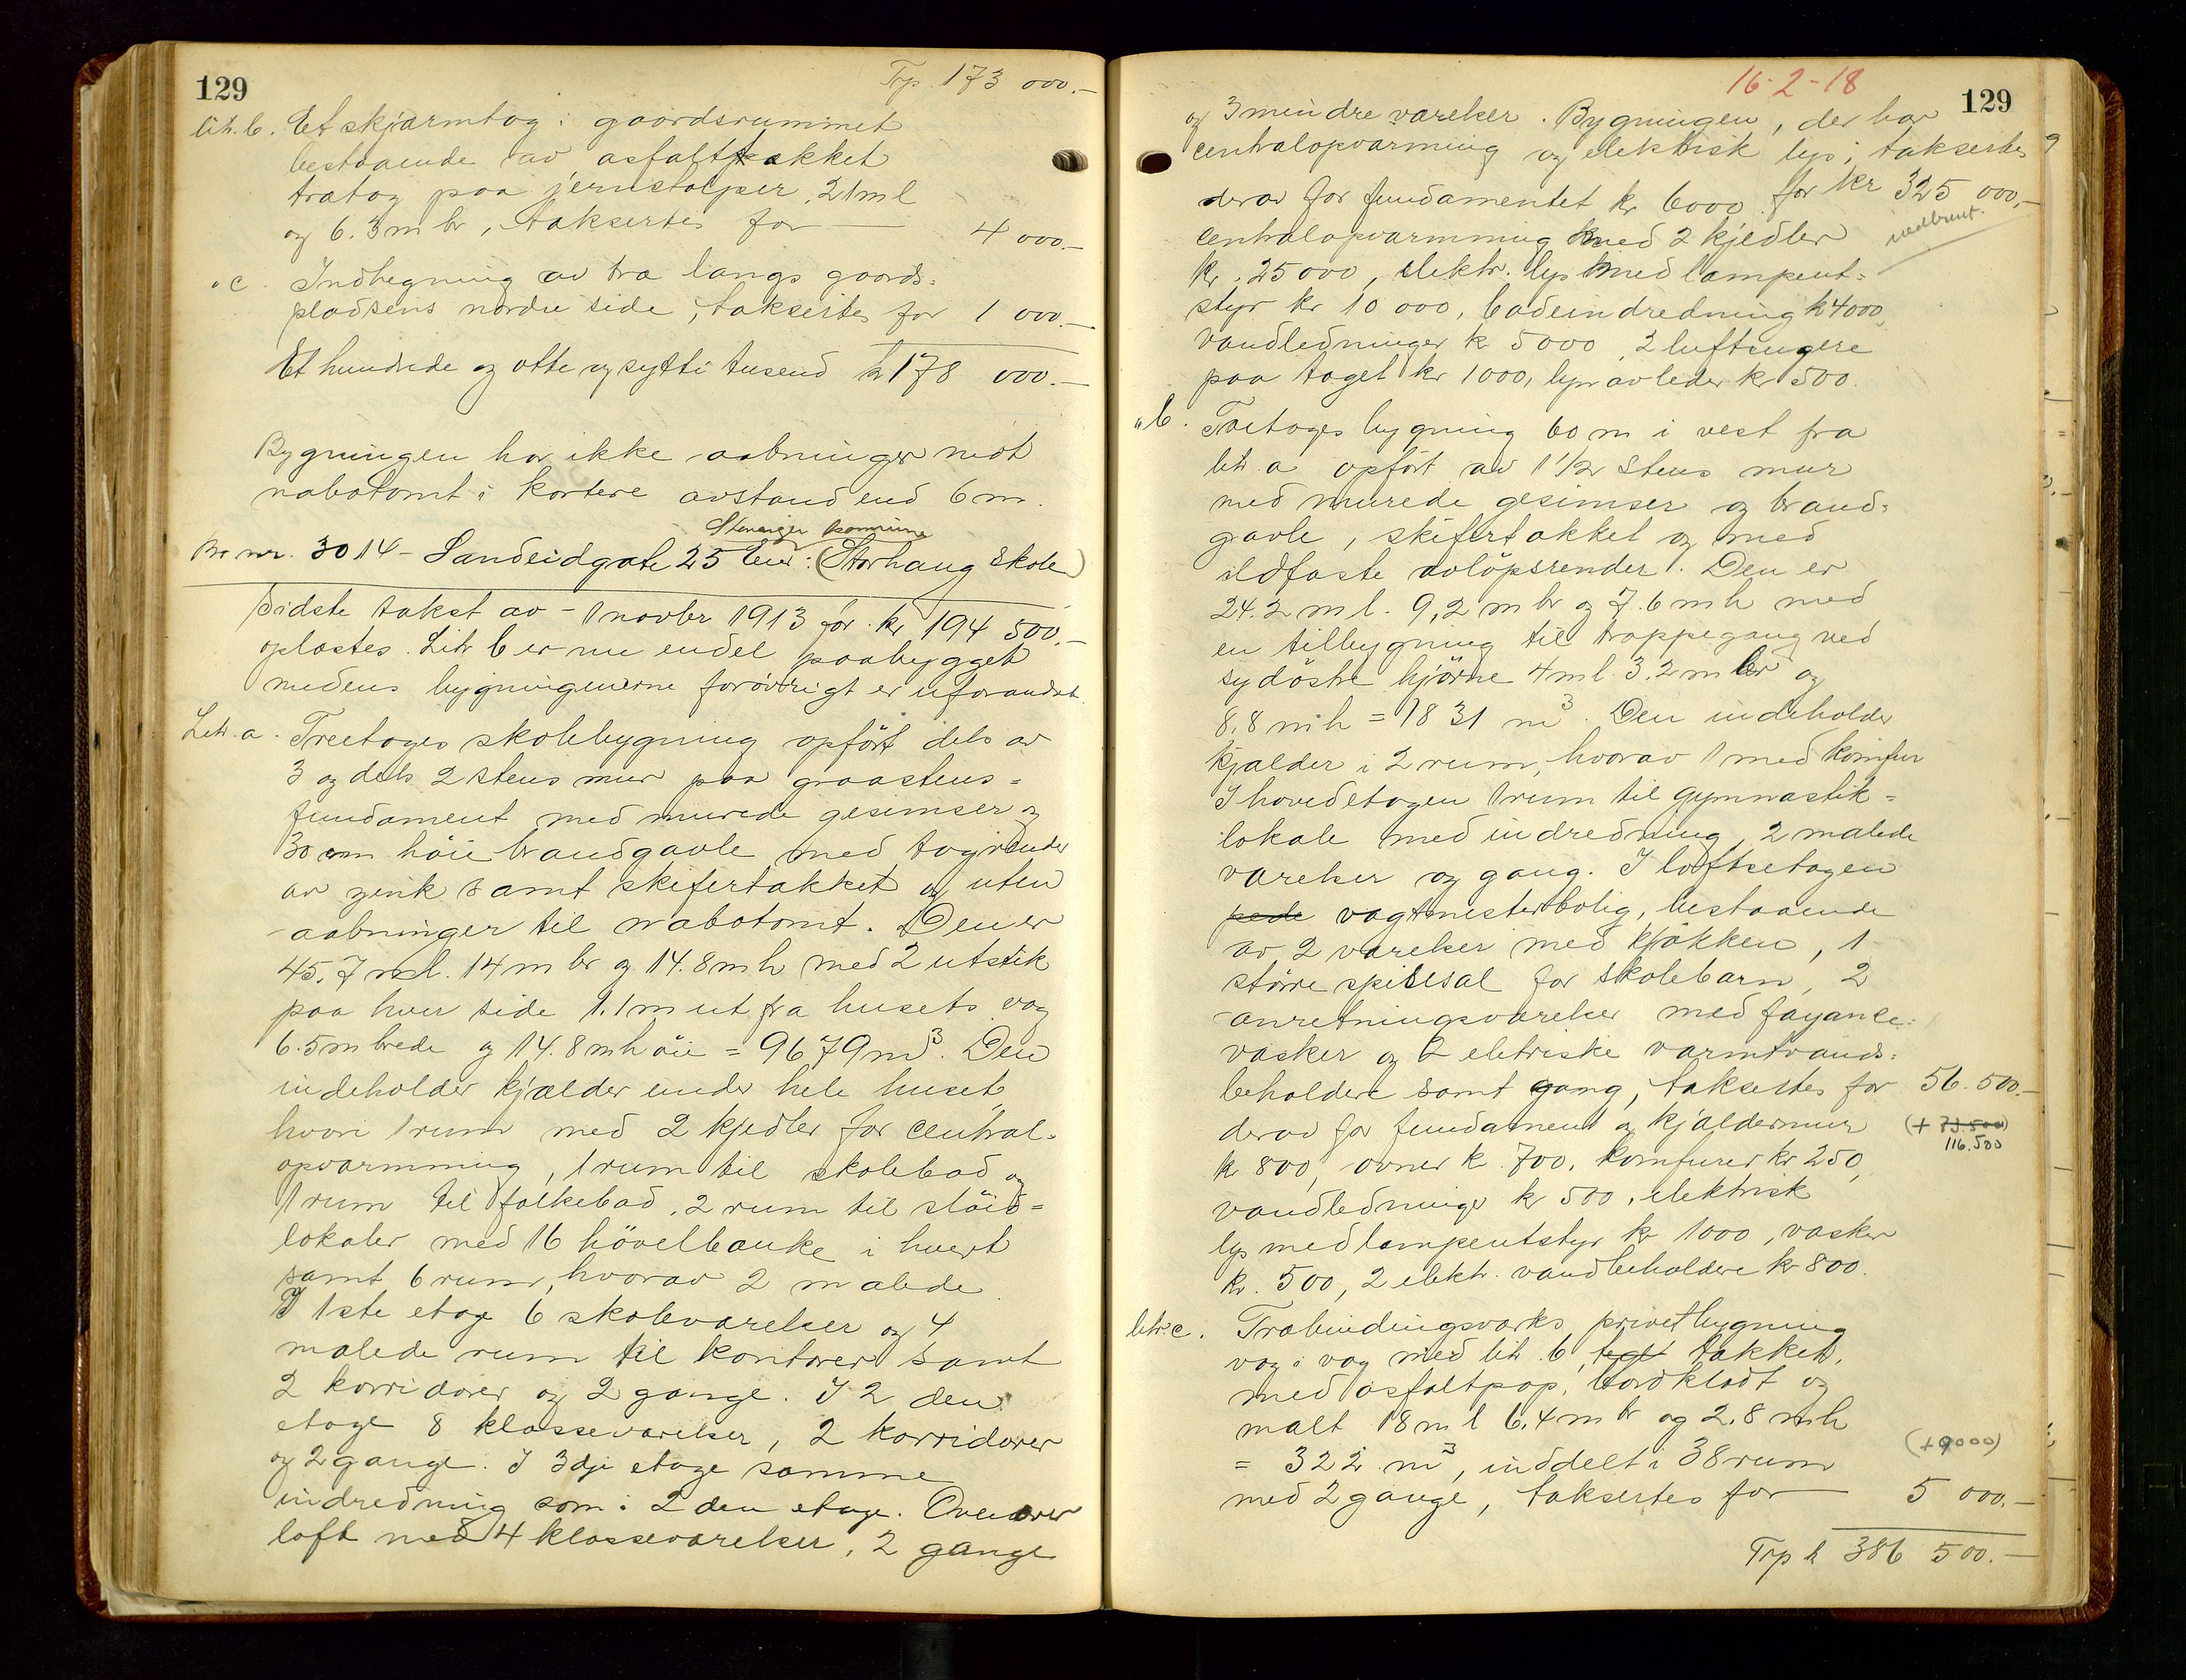 129
Trp. 173 000.-
lit. b. Et skjærmtag i gaardsrummet
bestaaende av asfalttækket
trætag paa jernstolper, 21 m l
og 6.3 m br, taksertes for — 4 000.-
" c. Indhegning av træ langs gaards-
pladsens nordre side, taksertes for 1 000.-
Et hundrede og otte og sytti tusend kr 178 000.-
Bygningen har ikke aabninger mot
nabotomt i kortere avstand end 6 m.
Stavanger kommune
Br nr. 3014 - Sandeidgate 25 Eier: (Storhaug skole)
Sidste takst av - 1 novbr 1913 for kr 194 500.-
oplæstes. Litr b er nu endel paabygget
medens bygningerne forøvrigt er uforandret.
Litr. a. Treetages skolebygning opført dels av
3 og dels 2 stens mur paa graastens-
fundament med murede gesimser og
30 cm høie brandgavle med tagrender
av zink samt skifertækket og uten
aabninger til nabotomt. Den er
45.7 m l. 14 m br og 14.8 m h med 2 utstik
paa hver side 1.1 m ut fra husets væg
6.5 m brede og 14.8 m høie = 9679 m³. Den
indeholder kjælder under hele huset
hvori 1 rum med 2 kjedler for central-
opvarmning, 1 rum til skolebad og
1 rum til folkebad, 2 rum til sløid-
lokaler med 16 høvelbænke i hvert
samt 6 rum, hvorav 2 malede.
I 1ste etage 6 skoleværelser og 4
malede rum til kontorer samt
2 korridorer og 2 gange. I 2 den
etage 8 klasseværelser, 2 korridorer
og 2 gange. I 3dje etage samme
indredning som i 2 den etage. Overover
loft med 4 klasseværelser, 2 gange
16-2-18
129
og 3 mindre værelser. Bygningen, der har
centralopvarming og elektrisk lys, taksertes
for kr 325 000,-
derav for fundamentet kr 6000
centralopvarmning med 2 kjedler
nedbrent.
kr. 25000, elektr. lys med lampeut-
styr kr 10 000, badeindredning kr 4000,
vandledninger kr 5000, 2 luftsugere
paa taget kr 1000, lynavleder kr 500.
" b. Toetages bygning 60 m i vest fra
litr. a opført av 1 1/2 Stens mur
med murede gesimser og brand-
gavle, skifertækket og med
ildfaste avløpsrender. Den er
24.2 m l. 9,2 m br og 7.6 m h med
en tilbygning til trappegang ved
sydøstre hjørne 4 m l. 3.2 m br og
8.8 m h = 1831 m³. Den indeholder
kjælder i 2 rum, hvorav 1 med komfur
I hovedetagen 1 rum til gymnastik-
lokale med indredning, 2 malede
værelser og gang. I loftsetagen
pede vagtmesterbolig, bestaaende
av 2 værelser med kjøkken, 1
større spisesal for skolebarn, 2
anretningsværelser med fayance-
vasker og 2 eletriske varmtvands-
beholdere samt gang, taksertes for 56.500.-
derav for fundament og kjældermur (+ 73.500)
116.500
kr 800, ovner kr. 700, komfurer kr 250,
vandledninger kr 500, elektrisk
lys med lampeutstyr kr 1000, vasker
kr. 500, 2 elektr. vandbeholdere kr 800.
litr. c. Træbindingsværks privetbygning
væg i væg med litr. b, teget tækket,
med asfaltpap, bordklædt og
malt 18 m l 6.4 m br og 2.8 m h
= 322 m³, inddelt i 38 rum (+9000)
med 2 gange, taksertes for — 5 000.-
Trp kr 386 500.-